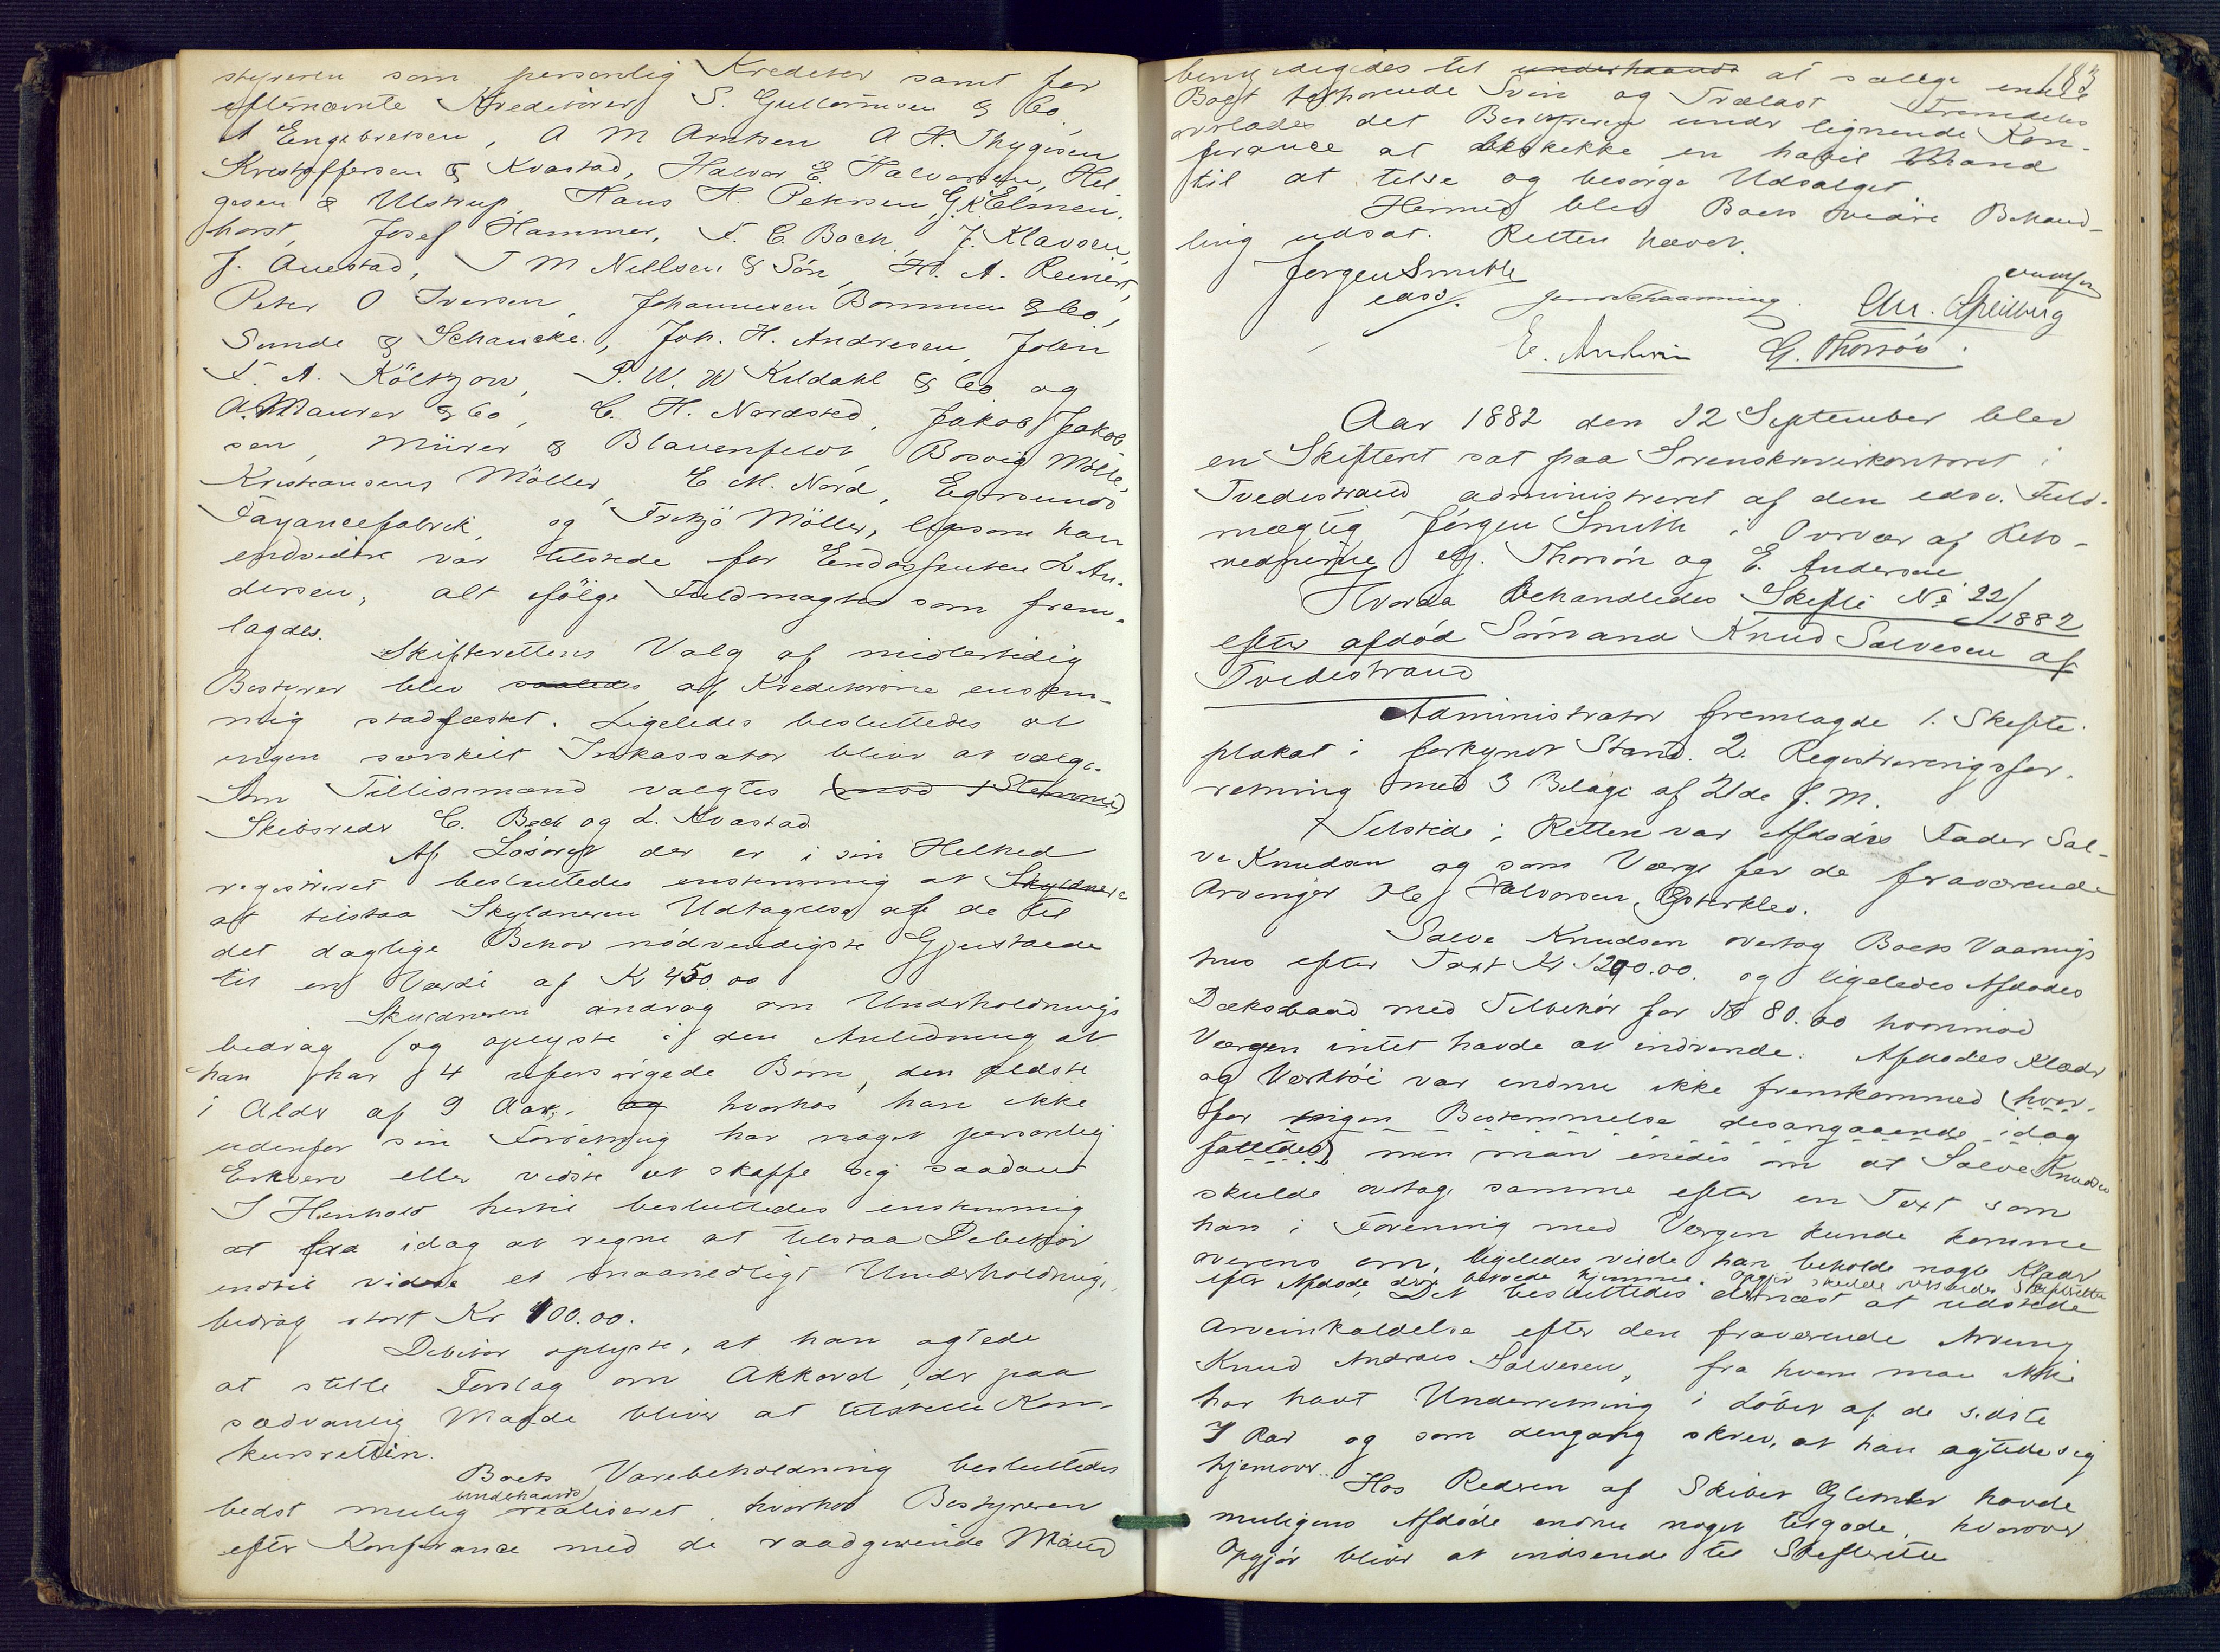 styreren som personlig Kreditor samt for
efternævnte Kreditorer S. Gulbransen & Co,
A Engebretsen, A M Arntsen A H. Thygesen
Kristoffersen & Kvastad, Halvor E. Halvorsen, Hel
gesen & Ulstrup, Hans H. Petersen, G. K Elmen
horst, Josef Hammer, F. C. Boch, J. Klavsen,
J. Auestad, T M Nillsen & Sön, H. A. Reinert,
Peter O Iversen, Johannesen Bormann & Co,
Sunde & Schancke, Joh. H. Andresen, John
F. A. Költzow, P. W. W Kildahl & Co og
A. Maurer & Co, C. H. Nordsted, Jakob Jakob
sen, Mürer & Blauenfeldt, Bosvig Mölle,
Kristiansens Möller, C. M. Nord, Egersunds
Fayancefabrik, og Fritzö Möller, ligesom han
endvidere var tilstede for Endossenten L An-
dersen, alt ifölge Fuldmagter som frem-
lagdes.
Skifterettens Valg af midlertidig
Bestyrer blev saaledes af Kreditorerne enstem-
mig stadfæstet. Ligeledes besluttedes at
ingen særskilt Inkassator bliver at vælge.
Som Tillidsmænd valgtes (mod 1 Stemme)
Skibsreder C. Boch og L. Kvastad
Af Lösöret der er i sin Helhed
registreret besluttedes enstemmig at Skyldnere
at tilstaa Skyldneren Udtagelse af de til
det daglige Behov nödvendigste Gjenstande
til en Værdi af Kr 450.00
Skyldneren androg om Underholdnings
bidrag og oplyste i den Anledning at
han har 4 uforsörgede Börn, den ældste
i Alder af 9 Aar, og hvorhos han ikke
udenfor sin Forretning har noget personlig
Erhverv eller vidste at skaffe sig saadant
I Henhold hertil besluttedes enstemmig
at fra idag at regne at tilstaa Debitor
indtil videre et maanedligt Underholdnings
bidrag stort Kr 100.00.
Debitor oplyste, at han agtede
at stille Forslag om Akkord, der paa
sædvanlig Maade bliver at tilstille Kon-
kursretten.
Boets Varebeholdning besluttedes
underhaands
bedst mulig realiseret, hvorhos Bestyreren
efter Konferance med de raadgivende Mænd
183
bemyndigedes til underhaands at sælge endel
Boet tilhörende Svin og Trælast Fremdeles
overlades det Bestyreren under lignende Kon-
ferance at beskikke en habil Mand
til at tilse og besörge Udsalget
Hermed blev Boets videre Behand-
ling udsat. Retten hævet.
Jörgen Smith
edsv. Chr. Speilberg
E. Andersen G. Thorsön.
Aar 1882 den 12 September blev
en Skifteret sat paa Sorenskriverkontoret i
Tvedestrand administreret af den edsv. Fuld-
mægtig Jörgen Smith i Overvær af Rets-
vidnerne G. Thorsön og E. Andersen
Hvorda Behandledes Skifte No 22/1882
efter afdöd Sömand Knud Salvesen af
Tvedestrand
Administrator fremlagde 1. Skifte-
plakat i forkyndt Stand. 2. Registreringsfor-
retning med 3 Bilage af 21de f. M.
Tilstede i Retten var Afdödes Fader Sal-
ve Knudsen og som Værge for de fraværende
Arvinger Ole Halvorsen, Österklev.
Salve Knudsen overtog Boets Vaanings
hus efter Taxt Kr 1200.00. og ligeledes Afdödes
Dæksbaad med Tilbehör for Kr 80.00 hvorimod
Værgen intet havde at indvende. Afdödes Klæder
og Værktöi var endnu ikke fremkommed (hvor-
for ingen Bestemmelse desangaaende idag
fattedes) men man enedes om at Salve Knudsen
skulde overtage samme efter en Taxt som
han i Forening med Værgen kunde komme
overens om, ligeledes vilde han beholde nogle Klæder
efter Afdöde, der beroede hjemme. Opgjör skulde tilstilles Skifteretten
Det besluttedes dernæst at udstede
Arveindkaldelse efter den fraværende Arving
Knud Andreas Salvesen, fra hvem man ikke
har havt Underretning i Löbet af de sidste
7 Aar og som dengang skrev, at han agtede sig
hjemover.
Hos Rederen af Skibet Glimt havde
muligens Afdöde endnu noget tilgode, hvorover
Opgjör bliver at indsende til Skifteretten